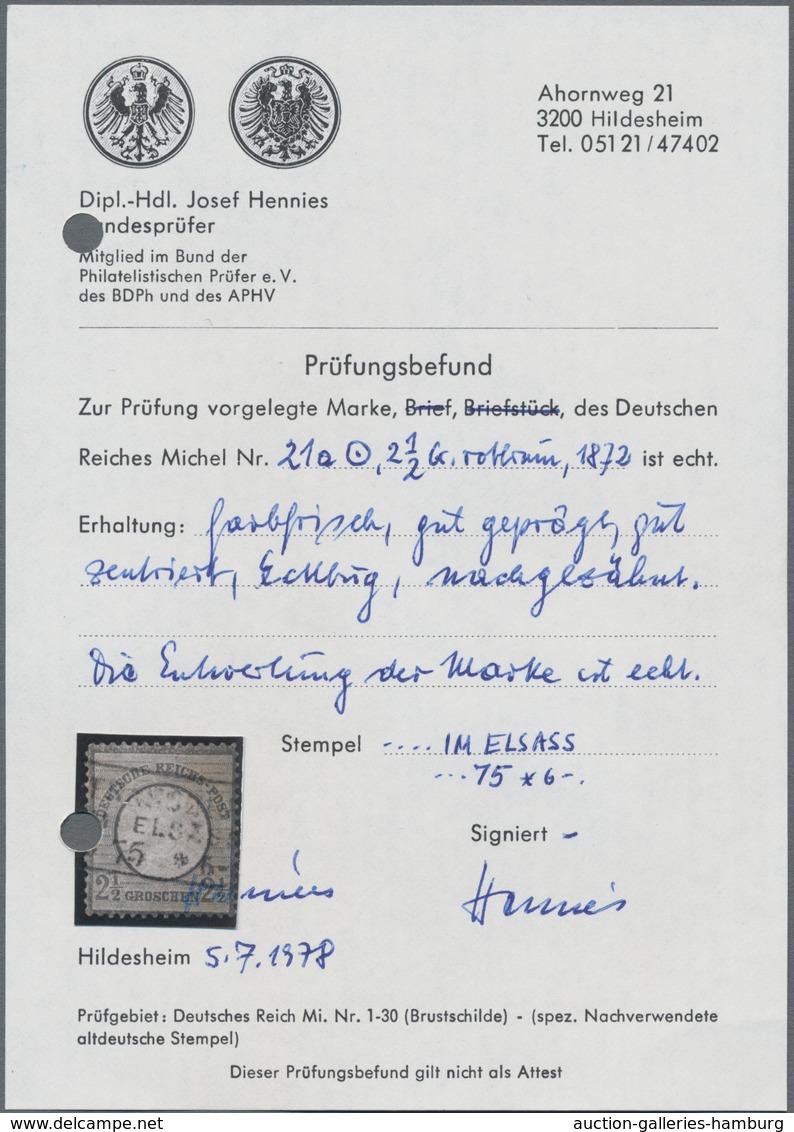 Ahornweg 21
3200 Hildesheim
Tel. 05121/47402
Dipl.-Hdl. Josef Hennies
ndesprüfer
Mitglied im Bund der
Philatelistischen Prüfer e. V.
des BDPh und des APHV
Prüfungsbefund
Zur Prüfung vorgelegte Marke, Brief, Briefstück, des Deutschen
Reiches Michel Nr. 21a ⊙, 2 1/2 Gr. rotbraun, 1872 ist echt.
Erhaltung: farbfrisch, gut geprägt, gut
zentriert, Eckbug, nachgezähnt.
Die Entwertung der Marke ist echt.
Stempel .... IM ELSASS
... 75 * 6-.
DEUTSCHE REICHS-POST
ELS
75 *
2 1/2 GROSCHEN 2 1/2
Signiert -
Hennies
Hildesheim 5.7.1978
Prüfgebiet: Deutsches Reich Mi. Nr. 1-30 (Brustschilde) - (spez. Nachverwendete
altdeutsche Stempel)
Dieser Prüfungsbefund gilt nicht als Attest
www.delcampe.net
auction-galleries-hamburg